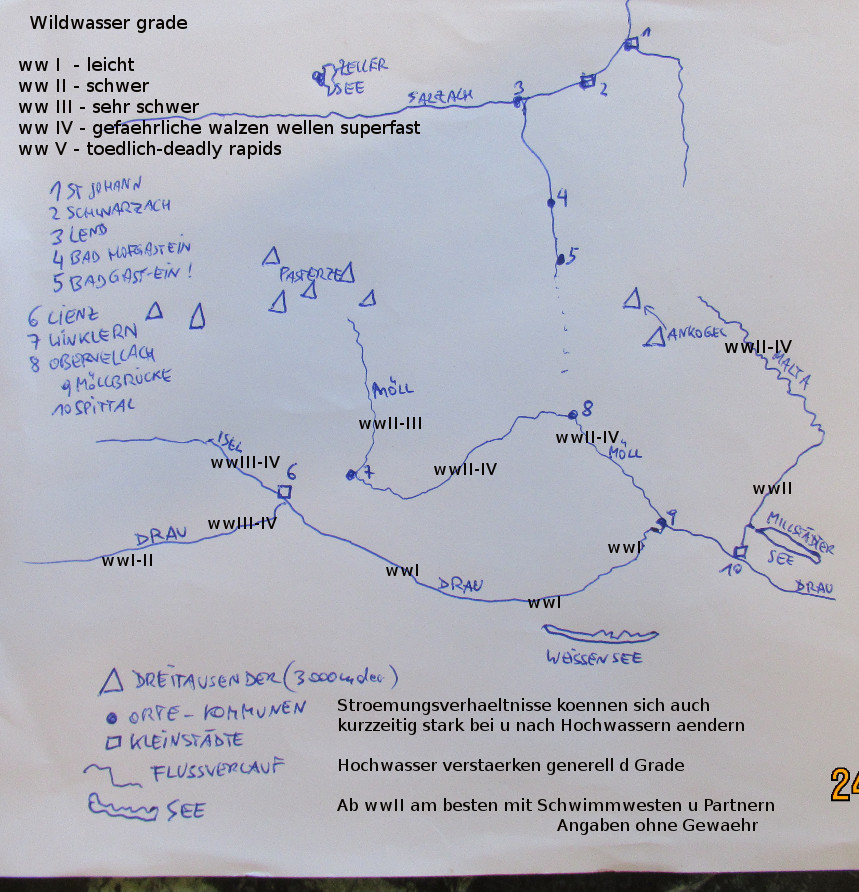 Wildwasser grade
ww I - leicht
ww II - schwer
ww III - sehr schwer
ww IV - gefaehrliche walzen wellen superfast
ww V - toedlich-deadly rapids
ZELLER
SEE
SALZACH
1
2
3
4
5
1 ST JOHANN
2 SCHWARZACH
3 LEND
4 BAD HOFGASTEIN
5 BADGAST-EIN!
6 LIENZ
7 WINKLERN
8 OBERVELLACH
9 MÖLLBRÜCKE
10 SPITTAL
PASTERZE
ANKOGEL
wwII-IV
MALTA
MÖLL
wwII-III
8
wwII-IV
MÖLL
ISEL
wwIII-IV
6
7
wwII-IV
wwII
wwIII-IV
DRAU
wwI-II
9
MILLSTÄDTER
SEE
10
DRAU
wwI
wwI
DRAU
wwI
WEISSENSEE
DREITAUSENDER (3000
ORTE - KOMMUNEN
KLEINSTÄDTE
FLUSSVERLAUF
SEE
Stroemungsverhaeltnisse koennen sich auch
kurzzeitig stark bei u nach Hochwassern aendern
Hochwasser verstaerken generell d Grade
Ab wwII am besten mit Schwimmwesten u Partnern
Angaben ohne Gewaehr
24